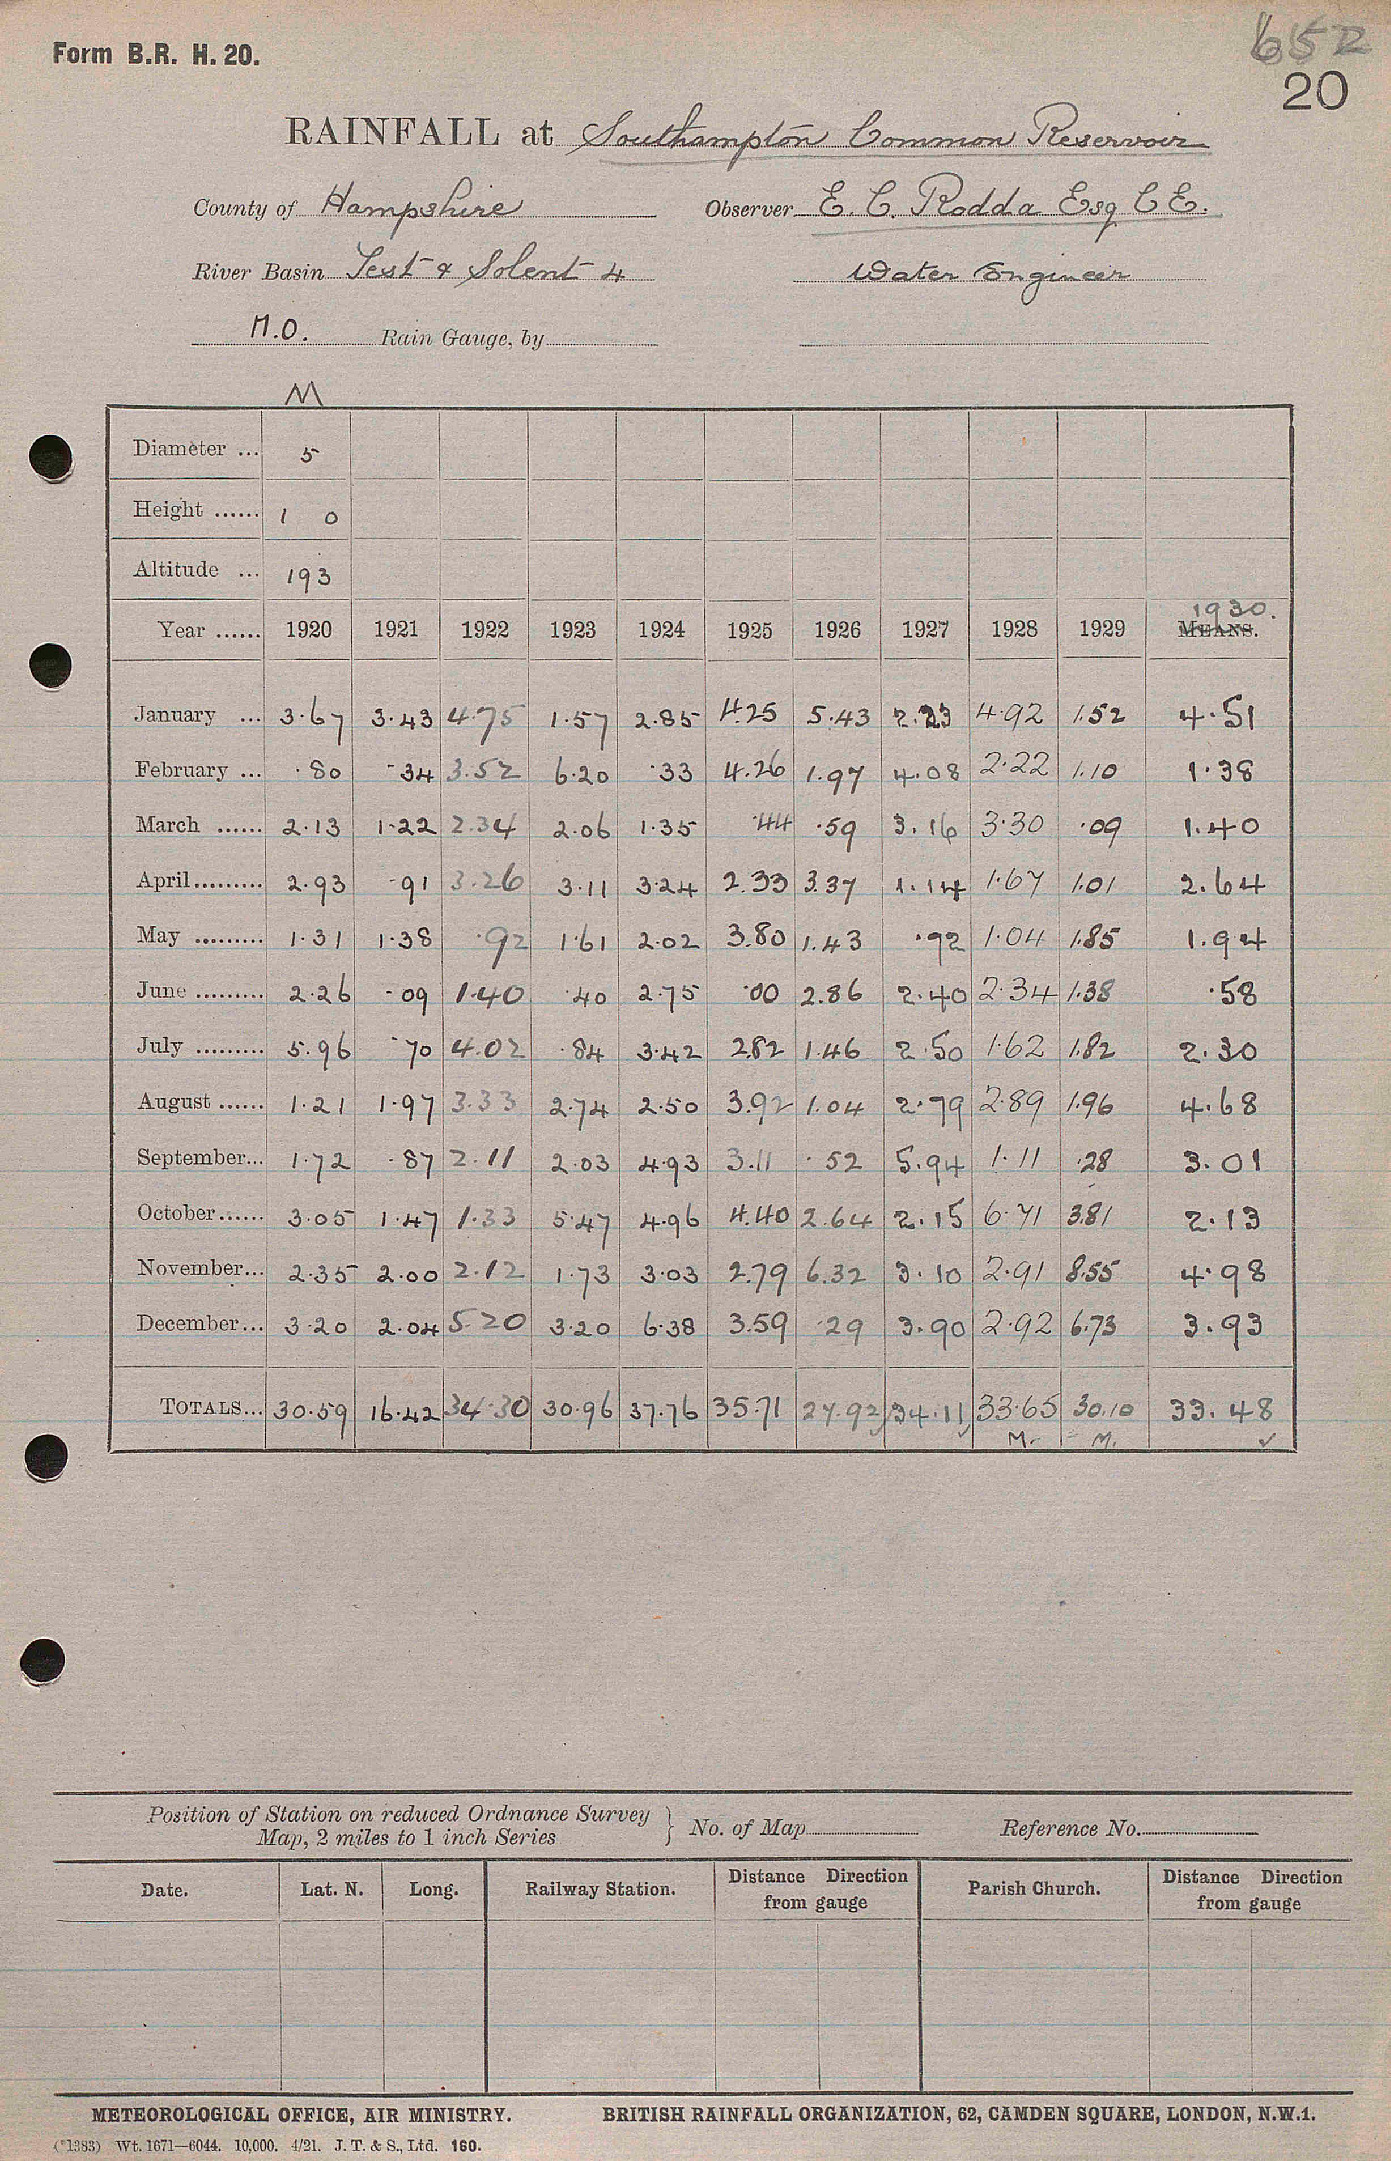 652
Form B.R. H. 20.
20
RAINFALL at Southampton Common Reservoir
County of Hampshire Observer E. C. Rodda Esq C E.
River Basin Test & Solent 4 Water Engineer
M.O. Rain Gauge, by
M
Diameter ... 5
Height ...... 1 0
Altitude ... 193
1930.
Year ...... 1920 1921 1922 1923 1924 1925 1926 1927 1928 1929 MEANS.
January ... 3.67 3.43 4.75 1.57 2.85 4.25 5.43 2.23 4.92 1.52 4.51
February ... .80 .34 3.52 6.20 .33 4.26 1.97 4.08 2.22 1.10 1.38
March ...... 2.13 1.22 2.34 2.06 1.35 .44 .59 3.16 3.30 .09 1.40
April......... 2.93 .91 3.26 3.11 3.24 2.33 3.37 1.14 1.67 1.01 2.64
May ......... 1.31 1.38 .92 1.61 2.02 3.80 1.43 .92 1.04 1.85 1.94
June ......... 2.26 .09 1.40 .40 2.75 .00 2.86 2.40 2.34 1.38 .58
July ......... 5.96 .70 4.02 .84 3.42 2.82 1.46 2.50 1.62 1.82 2.30
August ...... 1.21 1.97 3.33 2.74 2.50 3.92 1.04 2.79 2.89 1.96 4.68
September... 1.72 .87 2.11 2.03 4.93 3.11 .52 5.94 1.11 .28 3.01
October...... 3.05 1.47 1.33 5.47 4.96 4.40 2.64 2.15 6.71 3.81 2.13
November... 2.35 2.00 2.12 1.73 3.03 2.79 6.32 3.10 2.91 8.55 4.98
December... 3.20 2.04 5.20 3.20 6.38 3.59 .29 3.90 2.92 6.73 3.93
TOTALS... 30.59 16.42 34.30 30.96 37.76 35.71 27.92 34.11 33.65 30.10 33.48
M. M.
Position of Station on reduced Ordnance Survey
Map, 2 miles to 1 inch Series } No. of Map Reference No.
Date. Lat. N. Long. Railway Station. Distance Direction from gauge Parish Church. Distance Direction from gauge
METEOROLOGICAL OFFICE, AIR MINISTRY. BRITISH RAINFALL ORGANIZATION, 62, CAMDEN SQUARE, LONDON, N.W.1.
(*1383) Wt. 1671—6044. 10,000. 4/21. J. T. & S., Ltd. 160.